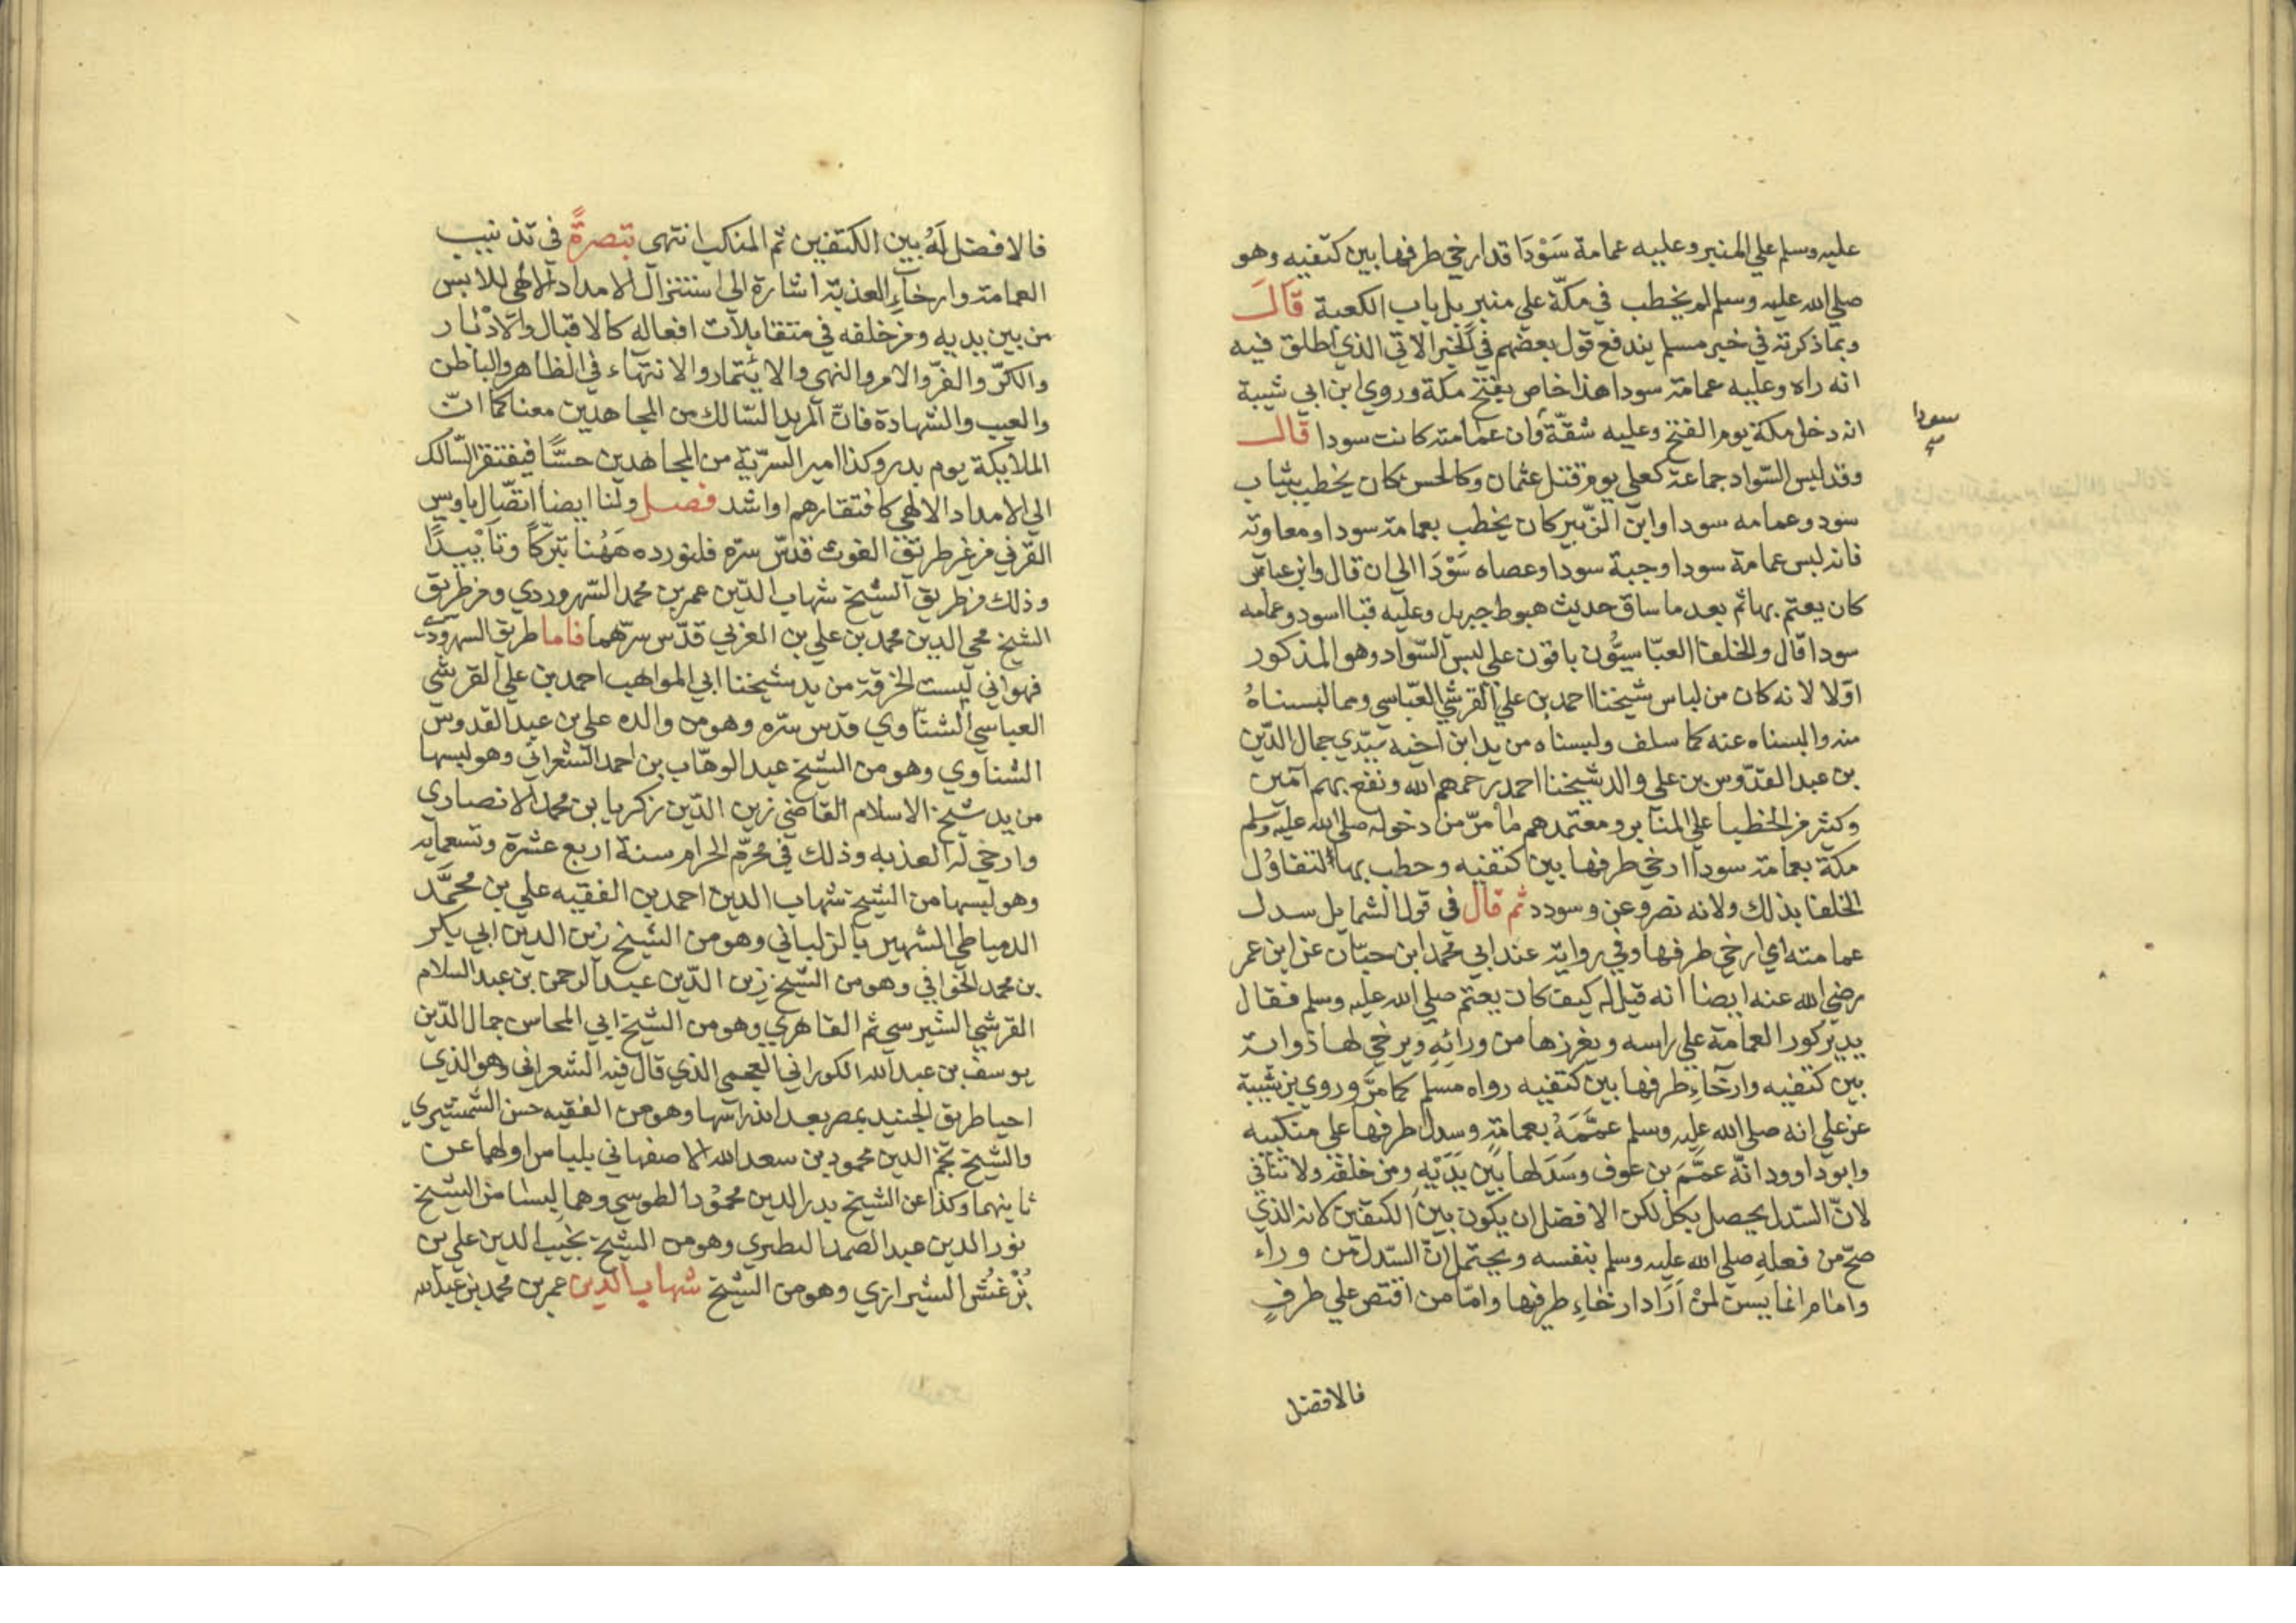 عليه وسلم علي المنبر وعليه عمامة سَوْدَا قد ارخي طرفها بين كتفيه وهو
صلي الله عليه وسلم لم يخطب في مكّة علي منبر بل باب الكعبة قالَ
وبما ذكرته في خبر مسلم يندفع قول بعضهم في الخبر الاتي الذي اطلق فيه
انه راه وعليه عمامة سودا هذا خاص بفتح مكة وروي ابن ابي شيبة
انه دخل مكة يوم الفتح وعليه شقّة وان عمامته كانت سودا قال
سودا
وقد لبس السّواد جماعة كعلي يوم قتل عثمان وكالحسن كان يخطب بثياب
سود وعمامه سودا وابن الزّبير كان يخطب بعمامة سودا ومعاوية
فانه لبس عمامة سودا وجبة سودا وعصاه سَوْدَا الي ان قال وابن عباس
كان يعتم بها ثم بعد ما ساق حديث هبوط جبريل وعليه قبا اسود وعمامه
سودا قال والخلفا العبّاسيّون باقون علي لبس السّواد وهو المذكور
اوّلا لانه كان من لباس شيخنا احمد بن علي القرشي العبّاسي ومما لبسناهُ
منه والبسناه عنه كما سلف ولبسناه من يد ابن اخيه سيّدي جمال الدّين
بن عبد القدّوس بن علي والد شيخنا احمد رحمهم الله ونفع بهم آمين
وكثر من الخطبا علي المنابر ومعتمدهم ما مرّ من دخوله صلي الله عليه وسلم
مكة بعمامة سودا ارخي طرفها بين كتفيه وخطب بها لتفاؤل
الخلفا بذلك ولانه نصر وعز وسودد ثم قال في قول الشمايل سدل
عمامته اي ارخي طرفها وفي رواية عند ابي محمد ابن حبّان عن ابن عمر
رضي الله عنه ايضا انه قيل له كيف كان يعتم صلي الله عليه وسلم فقال
يدير كور العمامة علي راسه ويغرزها من ورائهِ ويرخي لها ذوابة
بين كتفيه وارخاءِ طرفها بين كتفيه رواه مسلم كما مرّ وروي بن شيبة
عن علي انه صلي الله عليه وسلم عمَّمَهُ بعمامةٍ وسدل طرفها علي منكبيه
وابو داوود انّه عمَّمَ بن عوف وسَدَلها بَيْن يَدَيْهِ ومن خلفه ولا تنافي
لانّ السّدل يحصل بكل لكن الافضل ان يكون بين الكتفين لانه الذي
صحّ من فعله صلي الله عليه وسلم بنفسه ويحتمل انّ السّدل من وراء
وامام انما يسن لمنْ اَرَاد ارخاءِ طرفيها وامّا من اقتصر علي طرفٍ
فالافضل
فالافضل لهُ بين الكتفين ثم المنكب انتهي تبصرةً في تذنيب
العمامة وارخاءِ العذبة اشارة الي استنزال الامداد الالهي للابس
من بين يديه ومن خلفه في متقابلات افعاله كالاقبال والْاِدْبار
والكرّ والفرّ والامر والنهي والايتمار والانتهاء في الظاهر والباطن
والغيب والشهادة فانّ المريد السّالك من المجاهدين معنا كما انّ
الملايكة يوم بدر وكذا امير السريّة من المجاهدين حسًّا فيفتقر السّالك
الي الامداد الالهي كافتقارهم او اشد فصل ولنا ايضا اتصّال باويس
القرني من غير طريق الغوث قدّس سرّه فلنورده هَهُنا تبرّكاً وتأييدًا
وذلك من طريق الشيخ شهاب الدّين عمر بن محمد السّهروردي ومن طريق
الشيخ محي الدين محمد بن علي بن العربي قدّس سرّهما فاما طريق السهروردي
فهو اني لبست الخرقة من يد شيخنا ابي المواهب احمد بن علي القرشي
العباسي الشنّاوي قدس سرّه وهو من والده علي بن عبد القدوس
الشناوي وهو من الشيخ عبد الوهّاب بن احمد الشعراني وهو لبسها
من يد شيخ الاسلام القاضي زين الدّين زكريا بن محمد الانصاري
وارخي له العذبه وذلك في محرّم الحرام سنة اربع عشرة وتسعمايه
وهو لبسها من الشيخ شهاب الدين احمد بن الفقيه علي بن محمَّد
الدمياطي الشهير بالزلباني وهو من الشيخ زين الدين ابي بكر
بن محمد الخوافي وهو من الشيخ زين الدّين عبد الرحمن بن عبد السلام
القرشي الشيرسي ثم القاهري وهو من الشيخ ابي المحاسن جمال الدّين
يوسف بن عبد الله الكوراني العجمي الذي قال فيه الشعراني وهو الذي
احيا طريق الجنيد بمصر بعد اندراسها وهو من الفقيه حسن الشمشيري
والشيخ نجم الدين محمود بن سعد الله الاصفهاني بلباس اولهما عن
ثانيهما وكذا عن الشيخ بدر الدين محمُوْد الطوسي وهما لبسا من الشيخ
نور الدين عبد الصمد النطنزي وهو من الشيخ نجيب الدين علي بن
بُزْغُش الشيرازي وهو من الشيخ شهاب الدين عمر بن محمد بن عبد الله